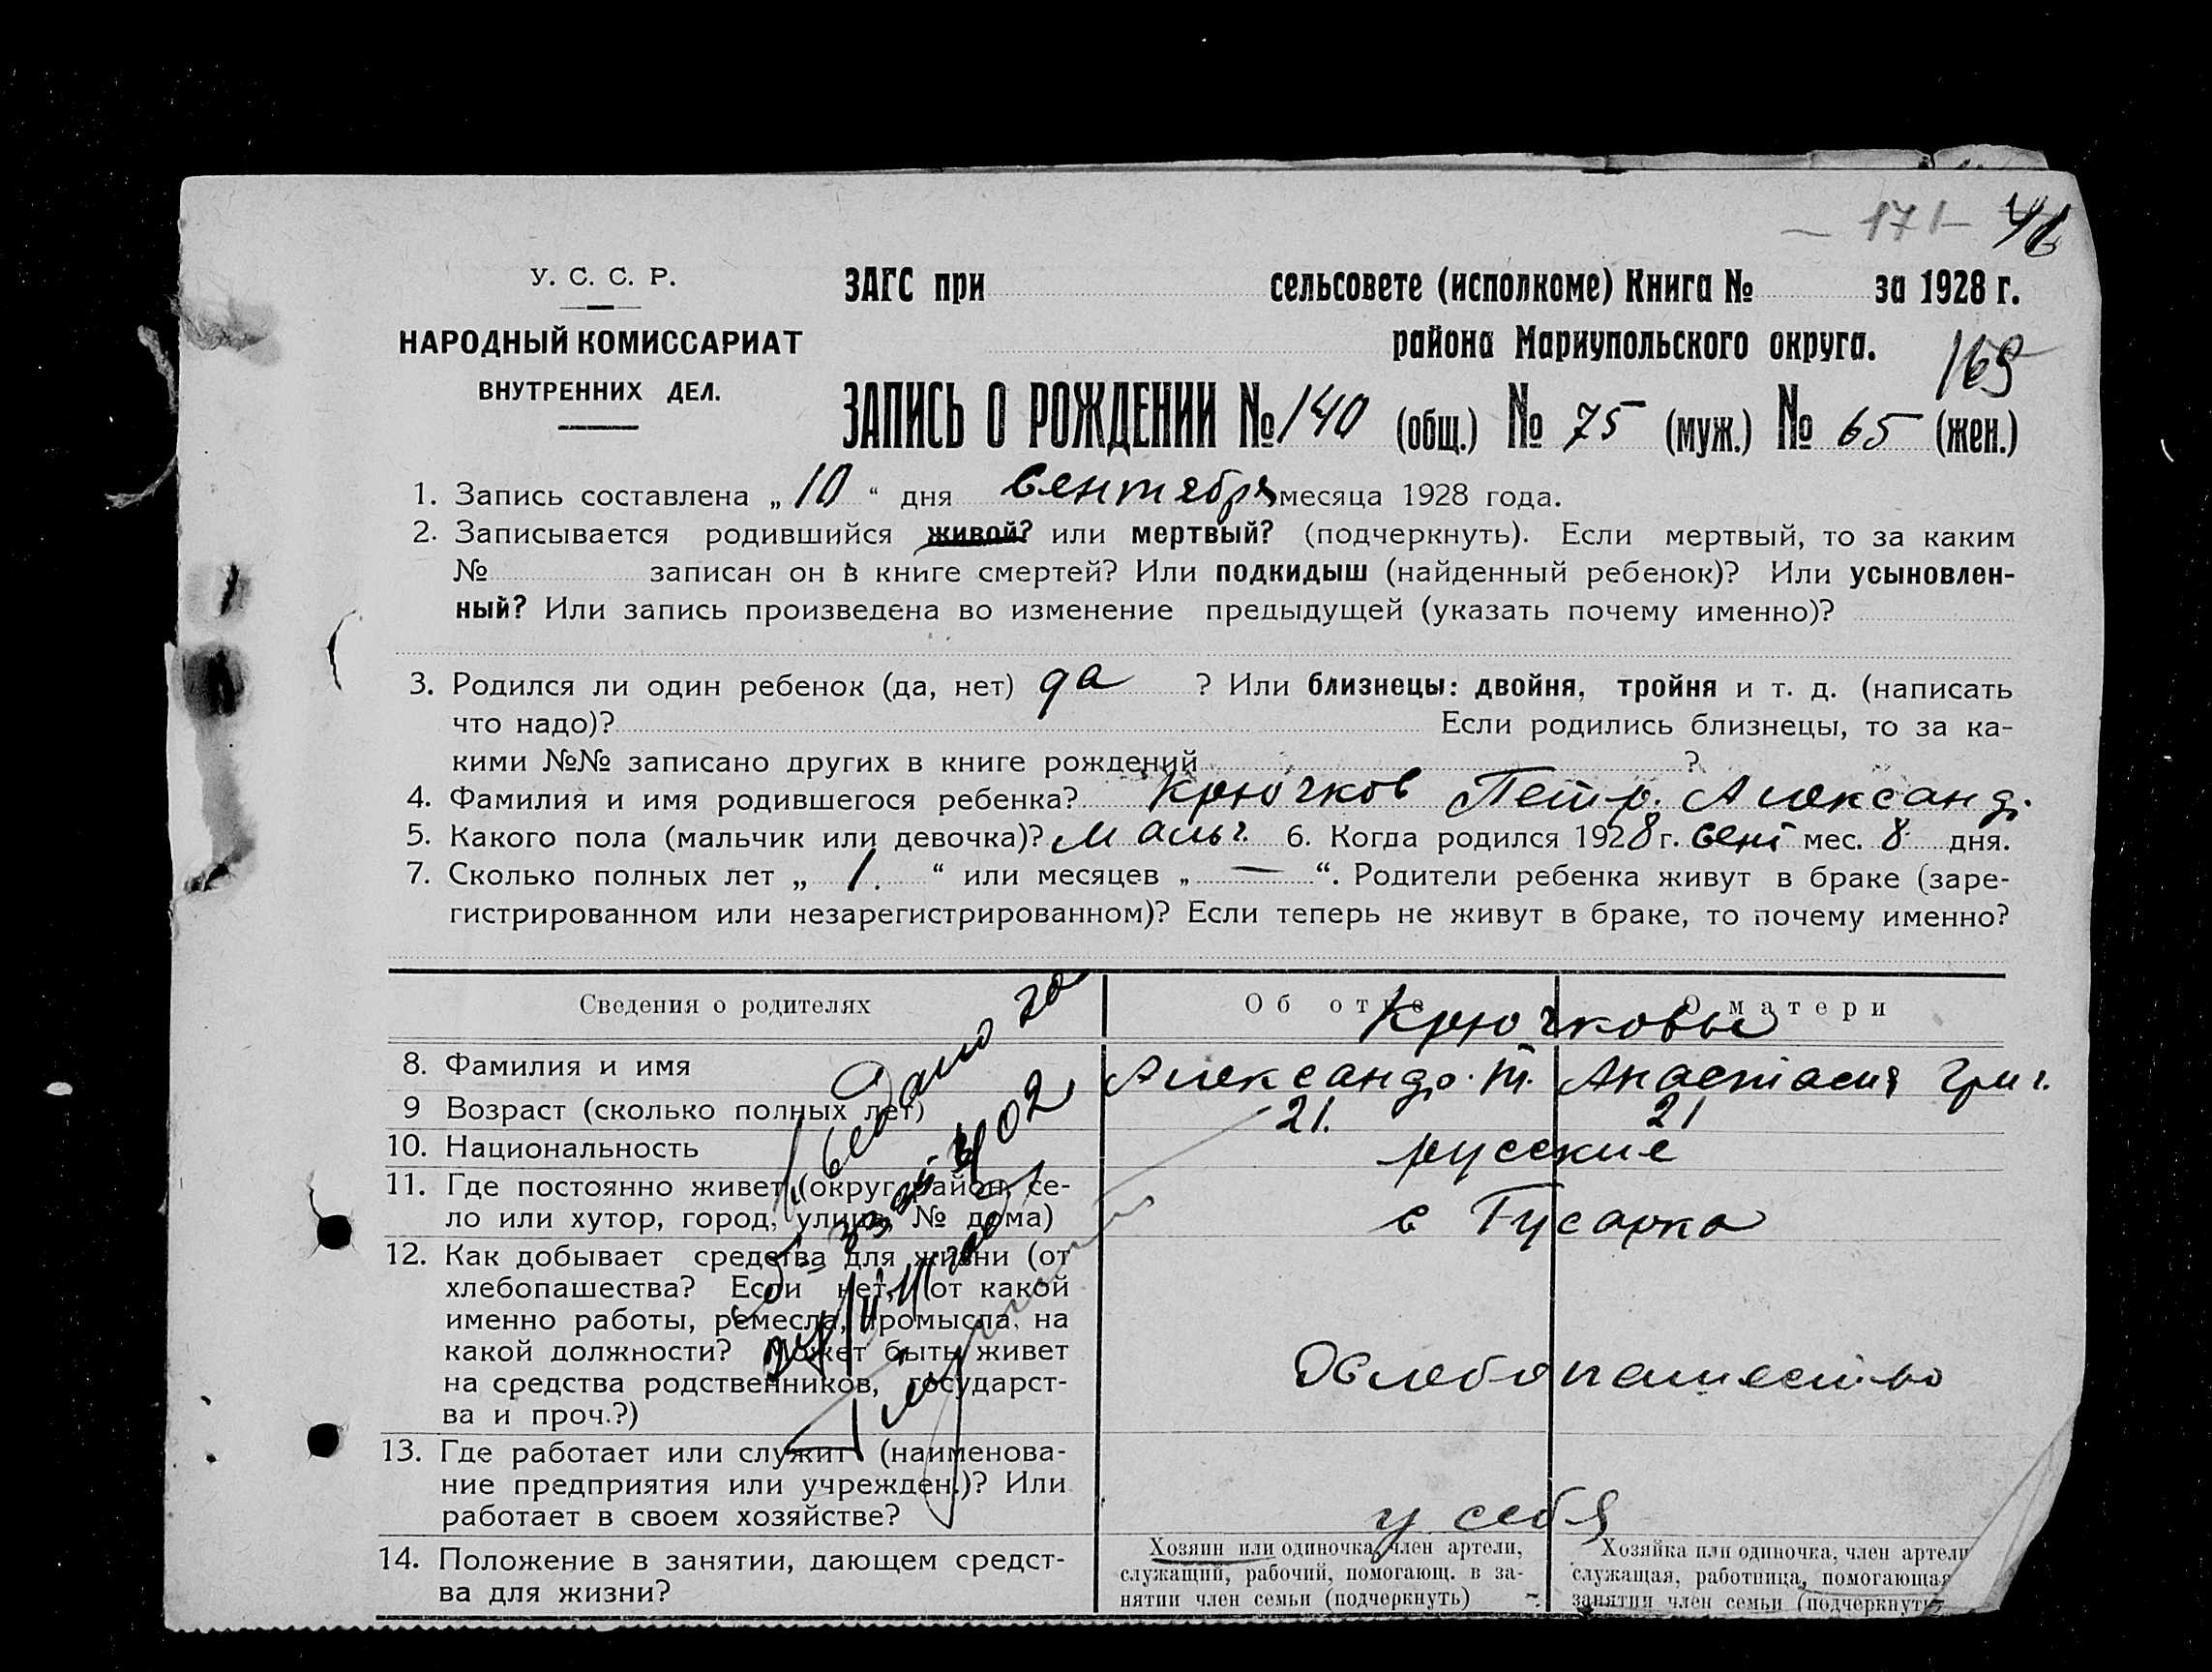 – 171 – 46
У. С. С. Р.
НАРОДНЫЙ КОМИССАРИАТ
ВНУТРЕННИХ ДЕЛ.
ЗАГС при сельсовете (исполкоме) Книга № за 1928 г.
района Мариупольского округа.
169
ЗАПИСЬ О РОЖДЕНИИ № 140 (общ.) № 75 (муж.) № 65 (жен.)
1. Запись составлена „ 10 “ дня Сентября месяца 1928 года.
2. Записывается родившийся живой? или мертвый? (подчеркнуть). Если мертвый, то за каким
№ записан он в книге смертей? Или подкидыш (найденный ребенок)? Или усыновлен-
ный? Или запись произведена во изменение предыдущей (указать почему именно)?
3. Родился ли один ребенок (да, нет) да ? Или близнецы: двойня, тройня и т. д. (написать
что надо)? Если родились близнецы, то за ка-
кими №№ записано других в книге рождений ?
4. Фамилия и имя родившегося ребенка? Крючков Петр. Александ.
5. Какого пола (мальчик или девочка)? Мальч. 6. Когда родился 1928 г. сент мес. 8 дня.
7. Сколько полных лет „ 1. “ или месяцев „ — “. Родители ребенка живут в браке (заре-
гистрированном или незарегистрированном)? Если теперь не живут в браке, то почему именно?
Сведения о родителях Об отце О матери
Крючковы
8. Фамилия и имя Александр. Т. Анастасия Григ.
9 Возраст (сколько полных лет) 21. 21
10. Национальность русские
11. Где постоянно живет (округ, район, се-
ло или хутор, город, улица, № дома) с Гусарка
12. Как добывает средства для жизни (от
хлебопашества? Если нет, от какой
именно работы, ремесла, промысла, на
какой должности? Может быть живет
на средства родственников, государст-
ва и проч.?) Хлебопашество
13. Где работает или служит (наименова-
ние предприятия или учрежден.)? Или
работает в своем хозяйстве? у себя
14. Положение в занятии, дающем средст-
ва для жизни?
Хозяин или одиночка, член артели,
служащий, рабочий, помогающ. в за-
нятии член семьи (подчеркнуть)
Хозяйка или одиночка, член артели
служащая, работница, помогающая
занятии член семьи (подчеркнуть